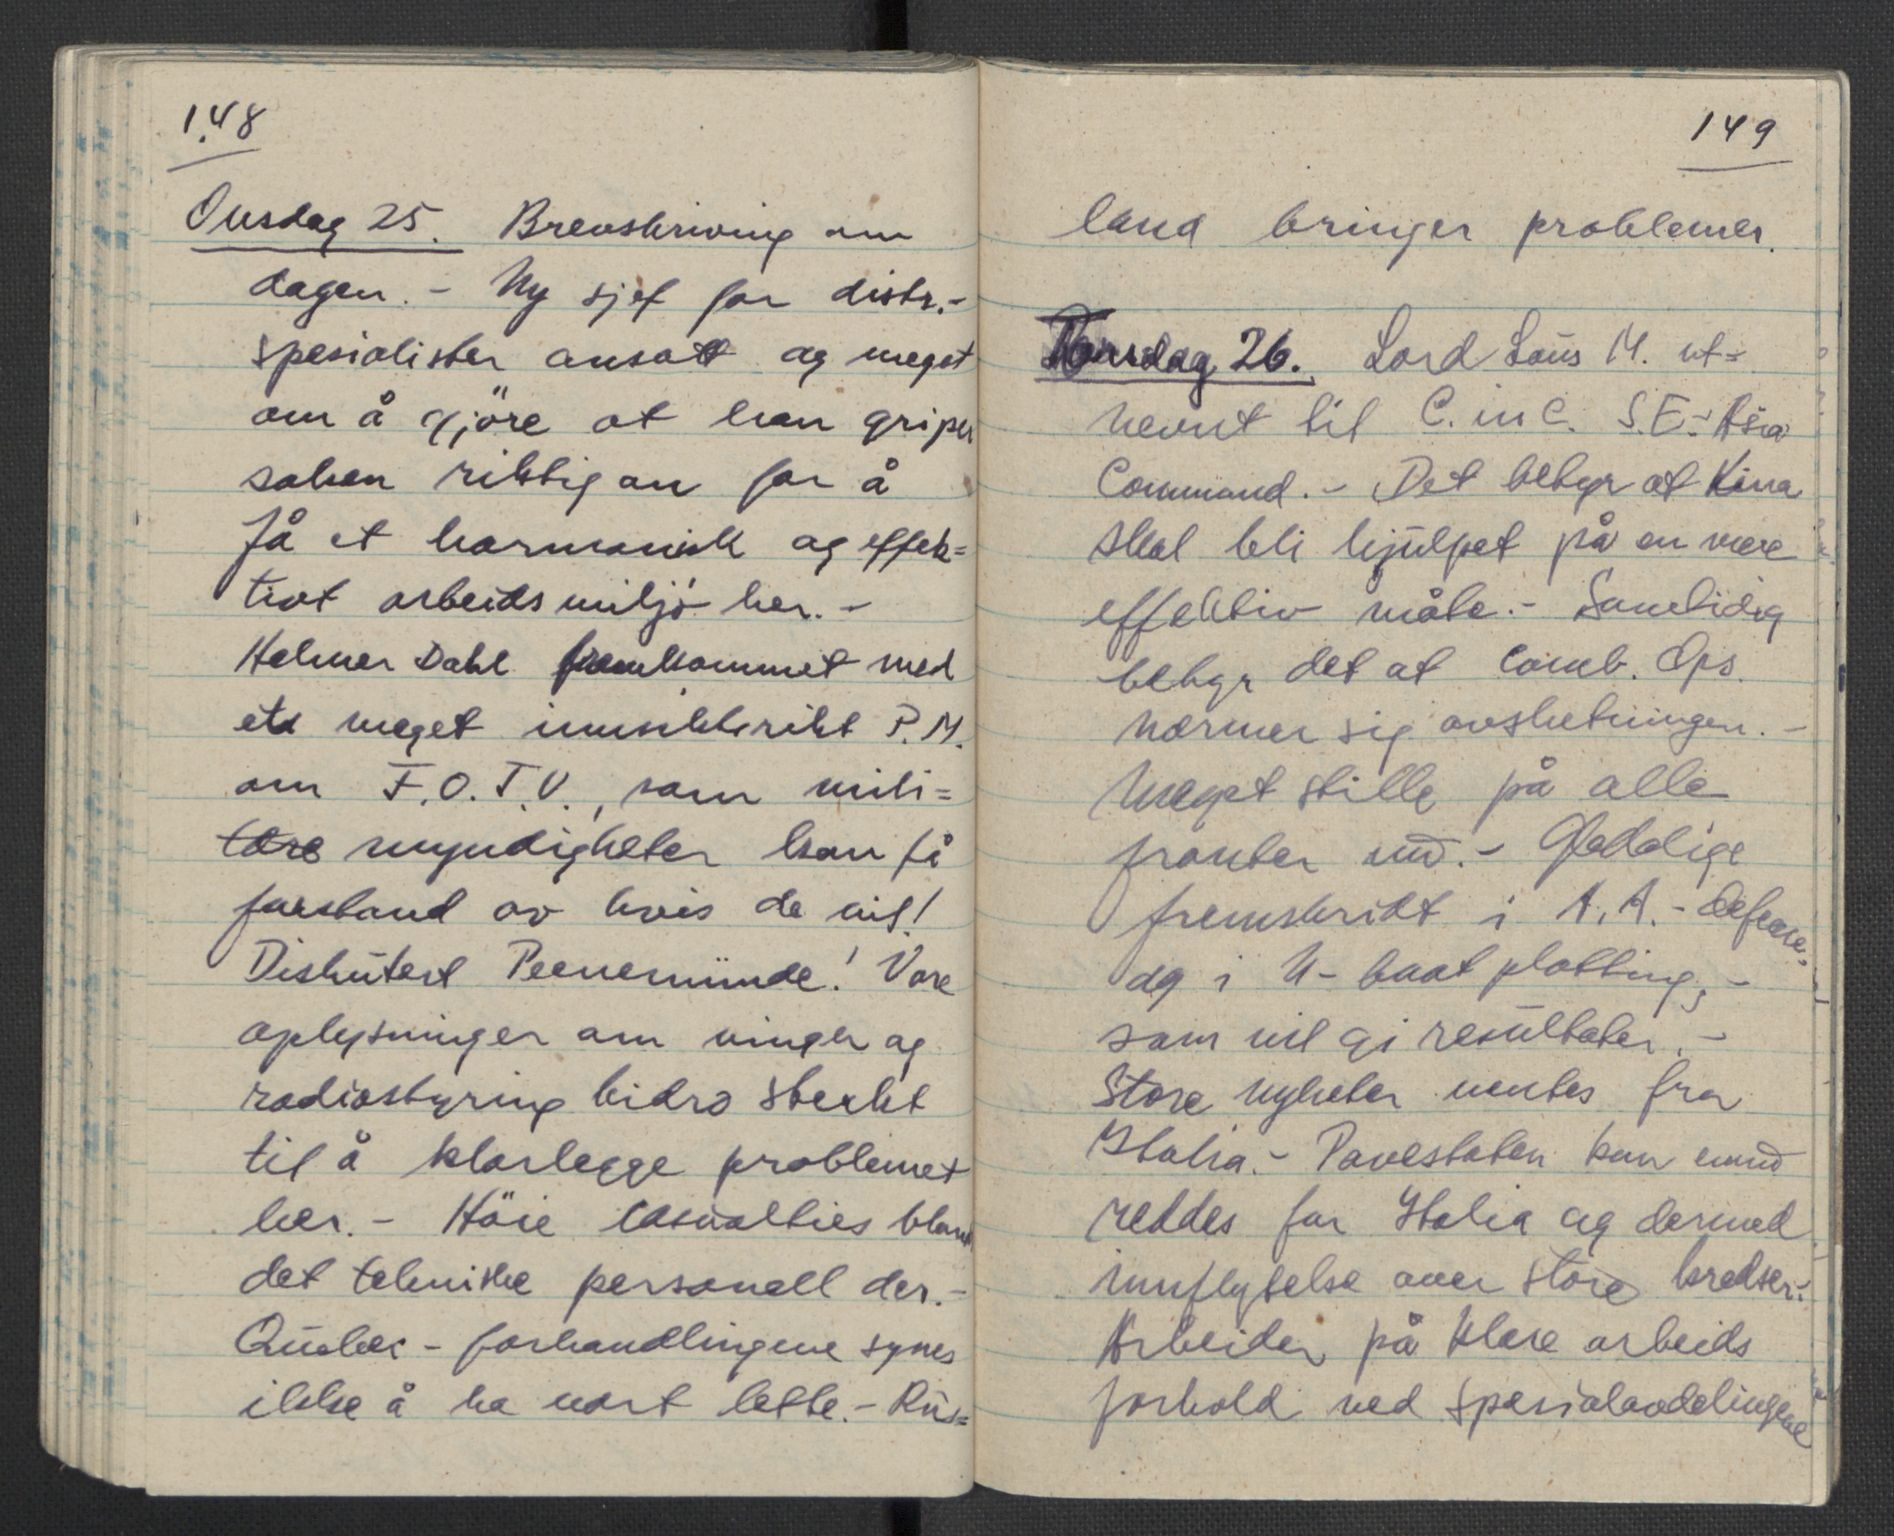 148
Onsdag 25. Brevskriving om
dagen. - Ny sjef for distr.-
spesialister ansatt og meget
om å gjöre at han griper
saken riktig an for å
få et harmonisk og effek=
tivt arbeidsmiljö her. -
Helmer Dahl fremkommet med
et meget innsiktsrikt P.M.
om F.O.T.U., som mili=
tære myndigheter kan få
forstand av hvis de vil!
Diskutert Peenemünde! Våre
oplysninger om vinger og
radiostyring bidro sterkt
til å klarlegge problemet
her. - Höie casualties bland
det tekniske personell der. -
Quebec - forhandlingene synes
ikke å ha vært lette. - Rus=
149
land bringer problemer.
Torsdag 26. Lord Louis M. ut=
nevnt til C. in C. S.E.-Asia
Command. - Det betyr at Kina
skal bli hjulpet på en mere
effektiv måte. - Samtidig
betyr det at Comb. Ops.
nærmer sig avslutningen. -
Meget stille på alle
fronter nu. - Gledelige
fremskridt i A.A.-defence
og i U-baat plotting, -
som vil gi resultater. -
Store nyheter ventes fra
Italia. - Pavestaten kan ennu
reddes for Italia og dermed
innflytelse over store kredser. -
Arbeider på klare arbeids
forhold ved spesialavdelingene